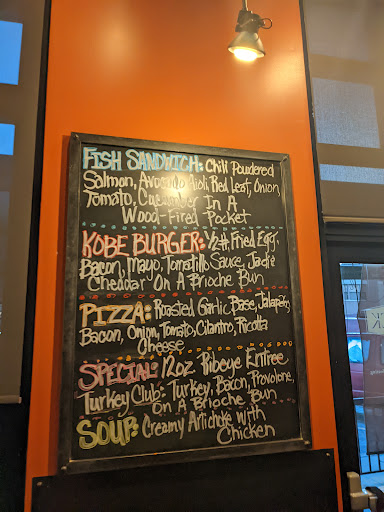 FISH SANDWICH: Chili Powdered
Salmon, Avocado Aioli, Red Leaf, Onion
Tomato, Cucumber In A
Wood-Fired Pocket
KOBE BURGER: 1/2# Fried Egg,
Bacon, Mayo, Tomatillo Sauce, Jack &
Cheddar On A Brioche Bun
PIZZA: Roasted Garlic Base, Jalapeño,
Bacon, Onion, Tomato, Cilantro, Ricotta
Cheese
SPECIAL: 12oz Ribeye Entree
Turkey Club: Turkey, Bacon, Provolone,
On A Brioche Bun
SOUP: Creamy Artichoke with
Chicken